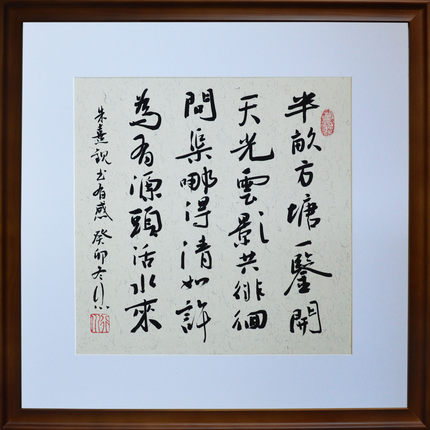 半畝方塘一鑒開
天光雲影共徘徊
問渠哪得清如許
為有源頭活水來
朱熹觀书有感 癸卯冬